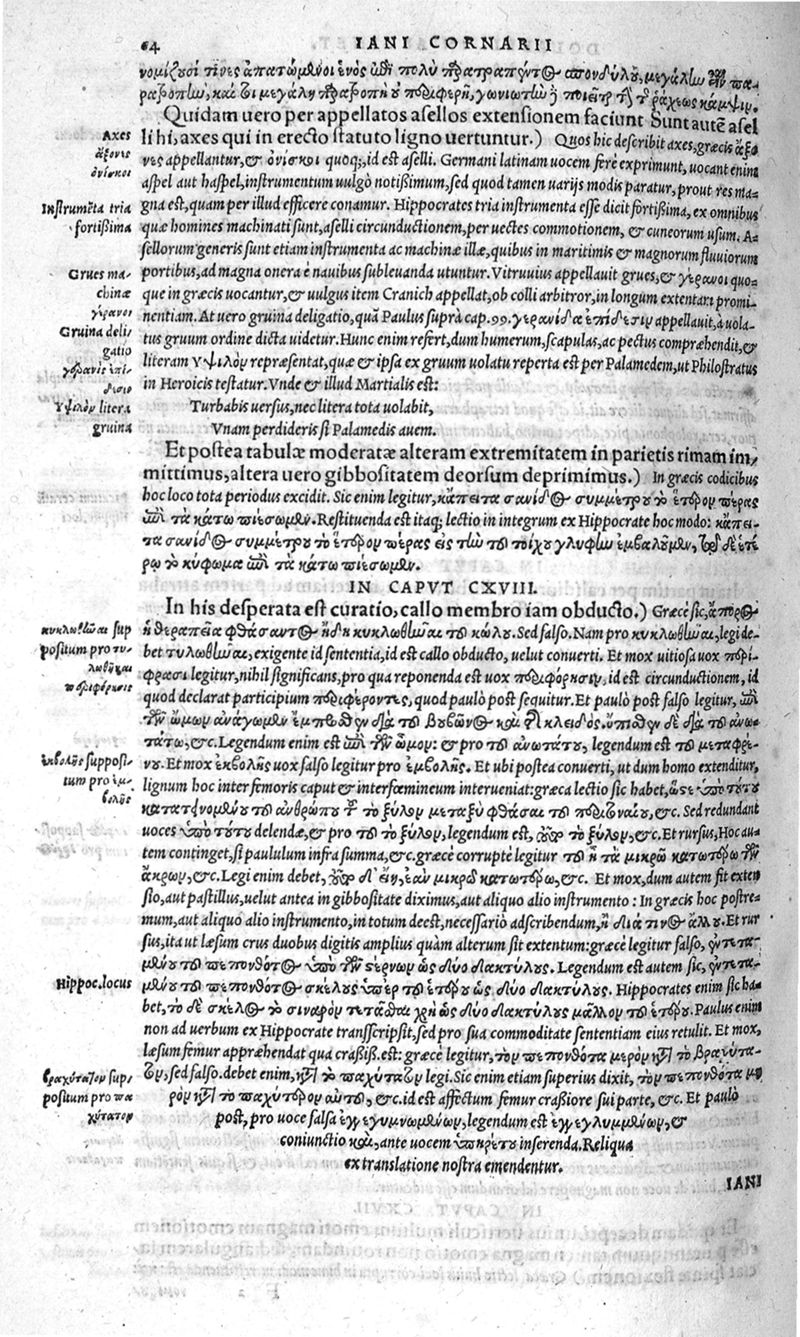 64 IANI CORNARII
νομίζουσί τινες ἀπατώμενοι ἑνὸς ἐπὶ πολὺ παρατραπέντος σπονδύλου, μεγάλην τὴν πα-
Quidam uero per appellatos asellos extensionem faciunt Sunt autẽ asel
Axes
li hi, axes qui in erecto statuto ligno uertuntur.) Quos hic describit axes, græcis ἄξο
ἄξονες
νες appellantur, & ὀνίσκοι quoq;, id est aselli. Germani latinam uocem ferè exprimunt, uocant enim
ὀνίσκοι
aspel aut haspel, instrumentum uulgò notißimum, sed quod tamen uarijs modis paratur, prout res ma-
Instrumẽta tria
gna est, quam per illud efficere conamur. Hippocrates tria instrumenta esse dicit fortißima, ex omnibus
fortißima
quæ homines machinati sunt, aselli circunductionem, per uectes commotionem, & cuneorum usum. A-
sellorum generis sunt etiam instrumenta ac machinæ illæ, quibus in maritimis & magnorum fluuiorum
Grues ma-
portibus, ad magna onera è nauibus subleuanda utuntur. Vitruuius appellauit grues, & γέρανοι quo-
chinæ
que in græcis uocantur, & uulgus item Cranich appellat, ob colli arbitror, in longum extentari promi-
γέρανοι
nentiam. At uero gruina deligatio, quã Paulus suprà cap. 99. γερανίδα ἐπίδεσιν appellauit, à uola-
Gruina deli-
tus gruum ordine dicta uidetur. Hunc enim refert, dum humerum, scapulas, ac pectus compræhendit, &
gatio
literam Υψιλὸν repræsentat, quæ & ipsa ex gruum uolatu reperta est per Palamedem, ut Philostratus
γερανὶς ἐπί-
δεσις
in Heroicis testatur. Vnde & illud Martialis est:
Υψιλὸν litera
Turbabis uersus, nec litera tota uolabit,
gruina
Vnam perdideris si Palamedis auem.
Et postea tabulæ moderatæ alteram extremitatem in parietis rimam im-
mittimus, altera uero gibbositatem deorsum deprimimus.) In græcis codicibus
hoc loco tota periodus excidit. Sic enim legitur, κἄπειτα σανίδος συμμέτρου τὸ ἕτερον πέρας
ἐπὶ τὰ κάτω πιέσωμεν. Restituenda est itaq; lectio in integrum ex Hippocrate hoc modo: κἄπει-
τα σανίδος συμμέτρου τὸ ἕτερον πέρας εἰς τὴν τοῦ τοίχου γλυφὴν ἐμβαλοῦμεν, τῷ δὲ ἑτέ-
ρῳ τὸ κύφωμα ἐπὶ τὰ κάτω πιέσωμεν.
IN CAPVT CXVIII.
In his desperata est curatio, callo membro iam obducto.) Græcè sic, ἄπορος
κυκλωθῆναι sup
ἡ θεραπεία φθάσαντος ἤδη κυκλωθῆναι τοῦ κώλου. Sed falso. Nam pro κυκλωθῆναι, legi de-
positum pro τυ-
bet τυλωθῆναι, exigente id sententia, id est callo obducto, uelut conuerti. Et mox uitiosa uox περί-
λωθῆναι
φρασι legitur, nihil significans, pro qua reponenda est uox περιφόρησιν, id est circunductionem, id
περιφόρησις
quod declarat participium περιφέροντες, quod paulò post sequitur. Et paulò post falso legitur, ἐπὶ
τὸν ὦμον ἀνάγωμεν ἔμπροσθεν διὰ τοῦ βουβῶνος καὶ τῆς κλειδὸς. ὄπισθεν δὲ διὰ τοῦ ἀνω-
τάτω, &c. Legendum enim est ἐπὶ τὸν ὦμον: & pro τοῦ ἀνωτάτου, legendum est τοῦ μεταφρέ-
ἐκβολῆς supposi-
νου. Et mox ἐκβολῆς uox falso legitur pro ἐμβολῆς. Et ubi postea conuerti, ut dum homo extenditur,
tum pro ἐμ-
lignum hoc inter femoris caput & interfœmineum interueniat: græca lectio sic habet, ὥστε ὑπὸ τούτου
βολῆς
κατατεινομένου τοῦ ἀνθρώπου τὸ ξύλον μεταξὺ φθάσαι τοῦ περιναίου, &c. Sed redundant
uoces ὑπὸ τούτου delendæ, & pro τοῦ ξύλου, legendum est, τὸ ξύλον, &c. Et rursus, Hoc au-
tem continget, si paululum infra summa, &c. græcè corruptè legitur τοῦ ἢ τὰ μικρῶ κατωτέρω τῶν
sio, aut pastillus, uelut antea in gibbositate diximus, aut aliquo alio instrumento: In græcis hoc postre-
mum, aut aliquo alio instrumento, in totum deest, necessariò adscribendum, ἢ διά τινος ἄλλου. Et rur
sus, ita ut læsum crus duobus digitis amplius quàm alterum sit extentum: græcè legitur falso, ἐντετα-
μένου τοῦ πεπονθότος ὑπὸ τῶν στέρνων ὡς δύο δακτύλους. Legendum est autem sic, ἐντετα-
Hippoc. locus
μένου τοῦ πεπονθότος σκέλους ὑπὲρ τοῦ ἑτέρου ὡς δύο δακτύλους. Hippocrates enim sic ha-
bet, τὸ δὲ σκέλος τὸ σιναρὸν τετάσθαι χρὴ ὡς δύο δακτύλους μᾶλλον τοῦ ἑτέρου. Paulus enim
non ad uerbum ex Hippocrate transscripsit, sed pro sua commoditate sententiam eius retulit. Et mox,
læsum femur appræhendat qua craßiß. est: græcè legitur, τὸν πεπονθότα μηρὸν κατὰ τὸ βραχύτα-
βραχύτατον sup-
τον, sed falso. debet enim, κατὰ τὸ παχύτατον legi. Sic enim etiam superius dixit, τὸν πεπονθότα μη
positum pro πα
ρὸν κατὰ τὸ παχύτερον αὐτοῦ, &c. id est affectum femur craßiore sui parte, &c. Et paulò
χύτατον
post, pro uoce falsa ἐγγεγυμνωμένων, legendum est ἐγγεγλυμμένων, &
coniunctio καὶ, ante uocem ὑπηρέτου inserenda. Reliqua
ex translatione nostra emendentur.
IANI